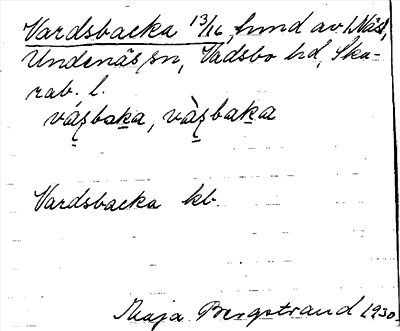 Vardsbacka 13/16 hmd av L. Näs,
Undenäs sn, Vadsbo hd, Ska-
rab. l.
vá̀ʂbaka, vàʂbaka
Vardsbacka kb.
Maja Bergstrand 1930.